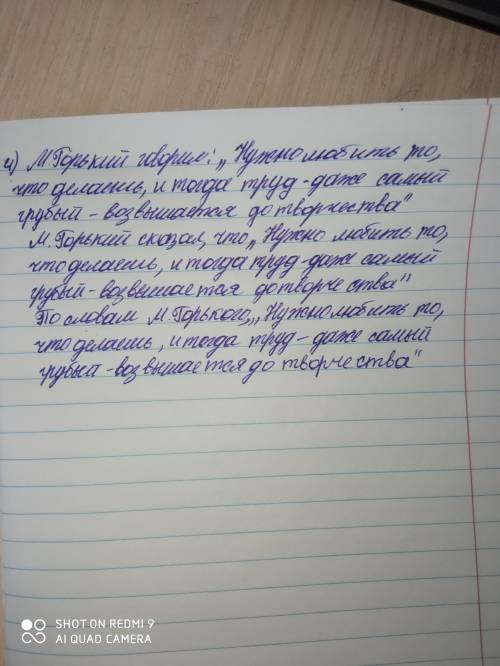 и) М Горький говорил: „Нужно любить то,
что делаешь, и тогда труд - даже самый
грубый - возвышается до творчества"
М. Горький сказал, что „Нужно любить то,
что делаешь, и тогда труд - даже самый
грубый - возвышается до творчества"
По словам М. Горького, „Нужно любить то,
что делаешь, и тогда труд - даже самый
грубый - возвышается до творчества"
SHOT ON REDMI 9
AI QUAD CAMERA